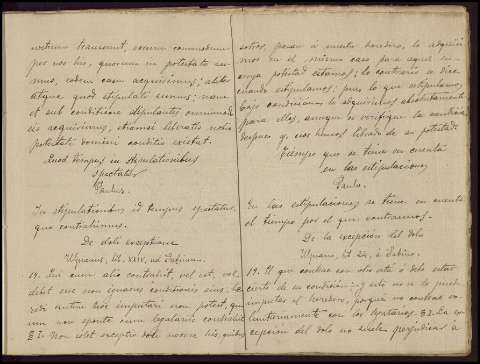 nostrum transeunt, eorum commodum
per nos his, quorum in potestate su-
mus, eodem casu acquirimus; aliter
atque quod stipulati sumus: nam
et sub conditione stipulantes omnimodo
eis acquirimus, etiamsi liberatis nobis
potestate domini conditio existat.
Quod tempus in stipulationibus
spectatur
Paulus.
In stipulationibus id tempus spectatur
quo contrahimus.
De doli exceptione
Ulpianus, lib. XXIV, ad Sabinum.
19. Qui cum alio contrahit, vel est, vel
debet esse non ignarus conditionis eius; he-
redi autem hoc imputari non potest, qu
um non sponte cum legatariis contrahit
§ I. Non solet exceptio doli nocere his, quibus
sotros, pasan á nuestro heredero, lo adquiri-
mos en el mismo caso para aquel en
cuya potestad estamos; lo contrario se dice
cuando estipulamos; pues lo que estipulamos
bajo condicion lo adquirimos absolutamente
para ellos, aunque se verifique la condicion
despues q. nos hemos librado de su potestad.
Tiempo que se tiene en cuenta
en las estipulaciones
Paulo.
En las estipulaciones se tiene en cuenta
el tiempo por el que contraemos.
De la excepción del dolo
Ulpiano, lib. á Sabino.
19. El que contrae con otro está ó debe estar
cierto de su condición; y esto no se puede
imputar al heredero, porqué no contrae vo-
luntariamente con los legatarios. § I. La ex-
cepcion del dolo no suele perjudicar á